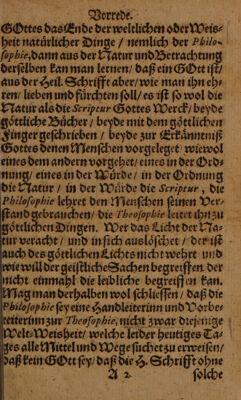 Vorrede.
GOttes das Ende der weltlichen oder Weis-
heit natürlicher Dinge / nemlich der Philo-
sophie, dann aus der Natur und Betrachtung
derselben kan man lernen / daß ein GOtt ist /
aus der Heil. Schrifft aber / wie man ihn eh-
ren / lieben und fürchten soll / es ist so wol die
Natur als die Scriptur Gottes Werck / beyde
göttliche Bücher / beyde mit dem göttlichen
Finger geschrieben / beyde zur Erkänntniß
Gottes denen Menschen vorgeleget / wiewol
eines dem andern vorgehet / eines in der Ord-
nung / eines in der Würde / in der Ordnung
die Natur / in der Würde die Scriptur, die
Philosophie lehret den Menschen seinen Ver-
stand gebrauchen / die Theosophie leitet ihn zu
göttlichen Dingen. Wer das Licht der Na-
tur veracht / und in sich auslöschet / der ist
auch des göttlichen Lichts nicht wehrt / und
wie will der geistliche Sachen begreiffen / der
nicht einmahl die leibliche begreiffen kan.
Mag man derhalben wol schliessen / daß die
Philosophie sey eine Handleiterinn und Vorbe-
reiterinn zur Theosophie, nicht zwar diejenige
Welt-Weisheit / welche leider heutiges Ta-
ges alle Mittel und Wege suchet zu erweisen /
daß kein GOtt sey / daß die H. Schrifft ohne
A 2 solche